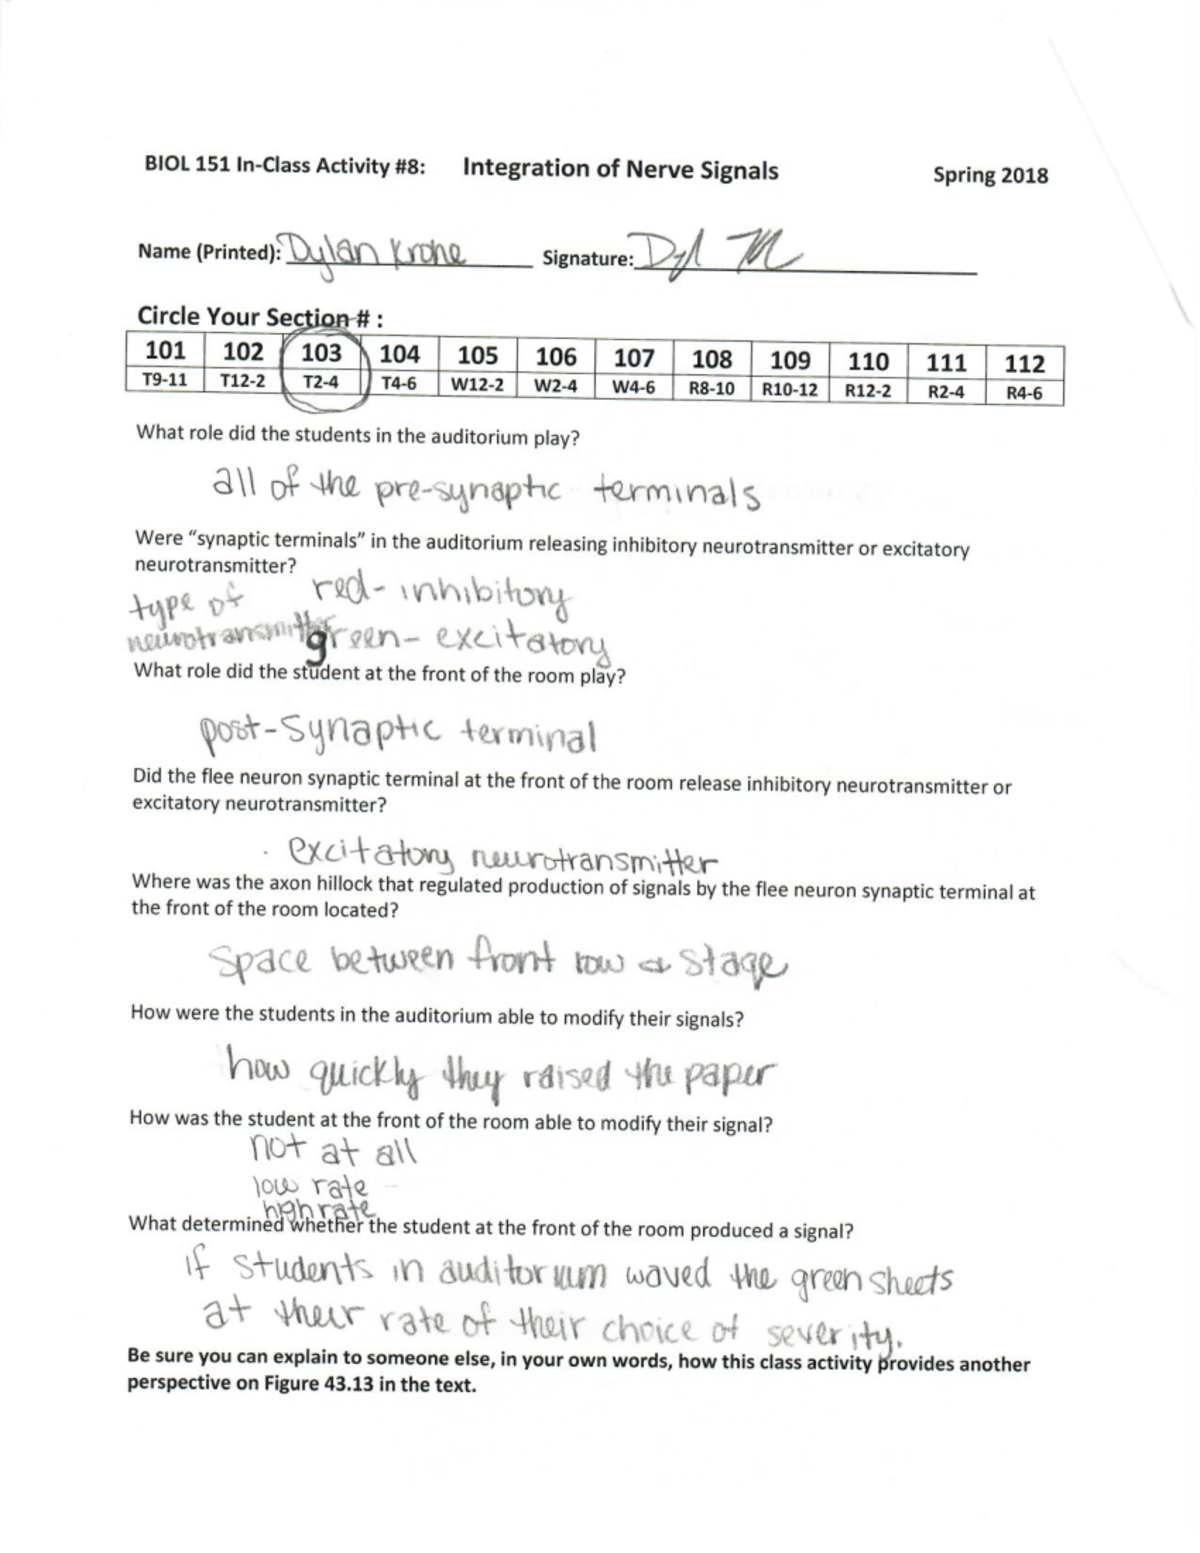 BIOL 151 In-Class Activity #8: Integration of Nerve Signals Spring 2018
Name (Printed): Dylan Krohe Signature: Dyl M
Circle Your Section # :
101 102 103 104 105 106 107 108 109 110 111 112
T9-11 T12-2 T2-4 T4-6 W12-2 W2-4 W4-6 R8-10 R10-12 R12-2 R2-4 R4-6
What role did the students in the auditorium play?
all of the pre-synaptic terminals
Were “synaptic terminals” in the auditorium releasing inhibitory neurotransmitter or excitatory
neurotransmitter?
type of red- inhibitory
neurotransmitter green- excitatory
What role did the student at the front of the room play?
post-synaptic terminal
Did the flee neuron synaptic terminal at the front of the room release inhibitory neurotransmitter or
excitatory neurotransmitter?
excitatory neurotransmitter
Where was the axon hillock that regulated production of signals by the flee neuron synaptic terminal at
the front of the room located?
Space between front row & stage
How were the students in the auditorium able to modify their signals?
how quickly they raised the paper
How was the student at the front of the room able to modify their signal?
not at all
low rate
high rate
What determined whether the student at the front of the room produced a signal?
if students in auditorium waved the green sheets
at their rate of their choice of severity.
Be sure you can explain to someone else, in your own words, how this class activity provides another
perspective on Figure 43.13 in the text.